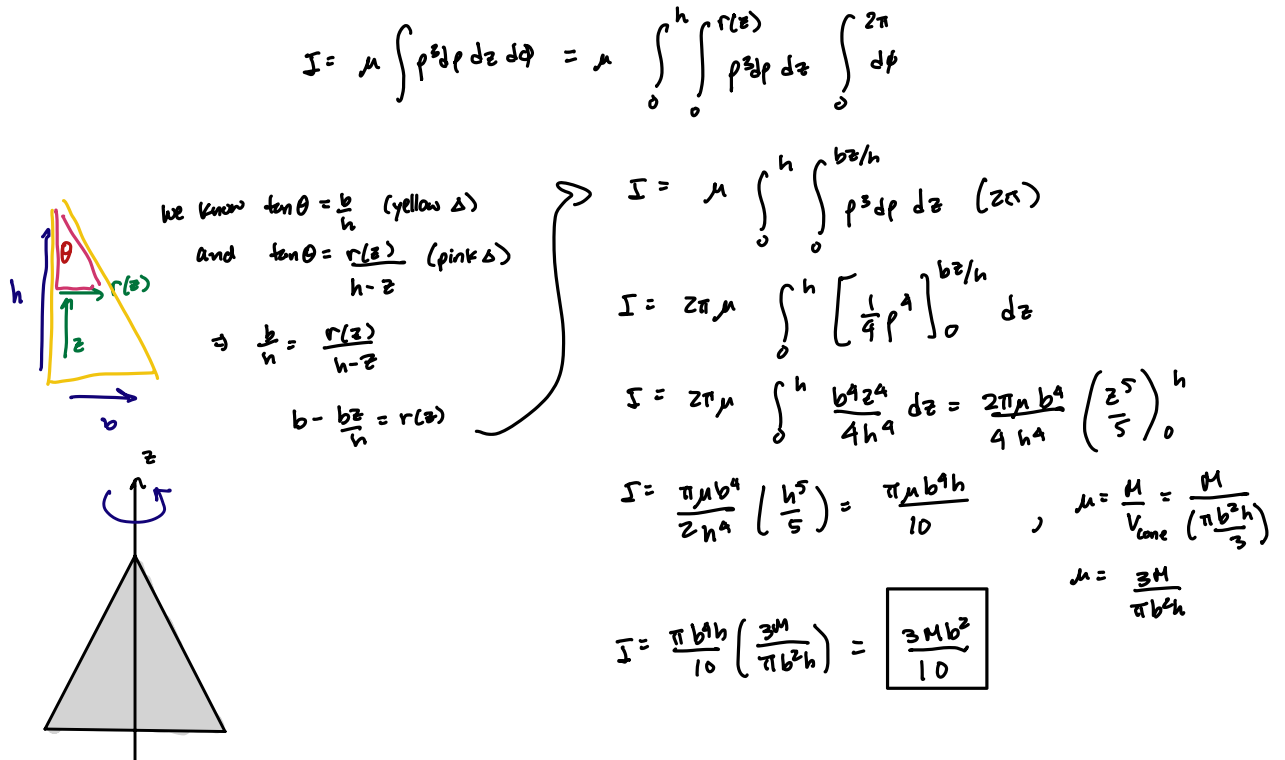 I = μ ∫ ρ³dρ dz dϕ = μ ∫₀ʰ ∫₀^{r(z)} ρ³dρ dz ∫₀^{2π} dϕ
we know tanθ = b/h (yellow Δ)
and tanθ = r(z)/(h-z) (pink Δ)
⇒ b/h = r(z)/(h-z)
b - bz/h = r(z)
h
θ
r(z)
z
b
z
I = μ ∫₀ʰ ∫₀^{bz/h} ρ³dρ dz (2π)
I = 2πμ ∫₀ʰ [1/4 ρ⁴]₀^{bz/h} dz
I = 2πμ ∫₀ʰ b⁴z⁴/4h⁴ dz = 2πμb⁴/4h⁴ (z⁵/5)₀ʰ
I = πμb⁴/2h⁴ (h⁵/5) = πμb⁴h/10 , μ = M/V_cone = M/(πb²h/3)
μ = 3M/πb²h
I = πb⁴h/10 (3M/πb²h) = 3Mb²/10